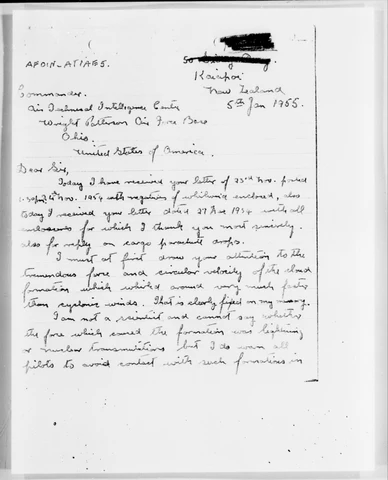 AFOIN-ATIAE5.
Kaiapoi
New Zealand
5th Jan 1955.
Commander.
Air Technical Intelligence Centre
Wright Patterson Air Force Base
Ohio.
United States of America.
Dear Sir,
Today I have received your letter of 23rd Nov. posted
Nov. 1954 with negatives of which enclosed, also
today I received your letter dated 27 1954 with all
enclosures for which I thank you most sincerely.
also for reply on cargo parachute drops.
I must at first draw your attention to the
tremendous force and circular velocity of the cloud
formation which whirled around very much faster
than cyclonic winds. That is clearly fixed on my memory.
I am not a scientist and cannot say whether
the force which caused the formation was lightning
or nuclear transmutations but I do warn all
pilots to avoid contact with such formations in